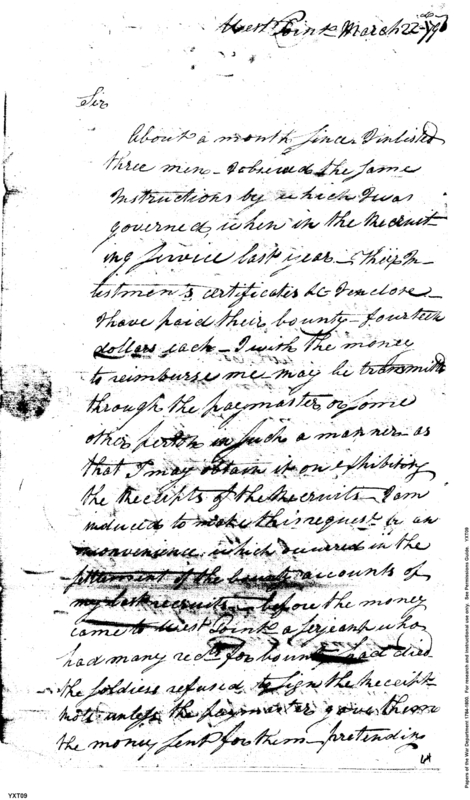 West Point March 22d 179
Sir
About a month since I inlisted
three men – I observed the same
Instructions by which I was
governed, when in the Recruit
ing service last year – their In
listments certificates &c I inclose –
I have paid their bounty – fourteen
dollars each – I wish the money
to reimburse me may be transmitted
through the paymaster or some
other person in such a manner as
that I may obtain it on exhibiting
the Receipts of the Recruits – I am
induced to make this request by an
inconvenience which occurred in the
settlement of the bounty accounts of
my last recruits – before the money
came to West Point a serjeant who
had many recd. for bounty had died
the soldiers refused to sign the receipt
rolls unless the paymaster gave them
the money sent for them – pretending
YXT09
Papers of the War Department 1784-1800. For research and instructional use only. See Permissions Guide. YXT09